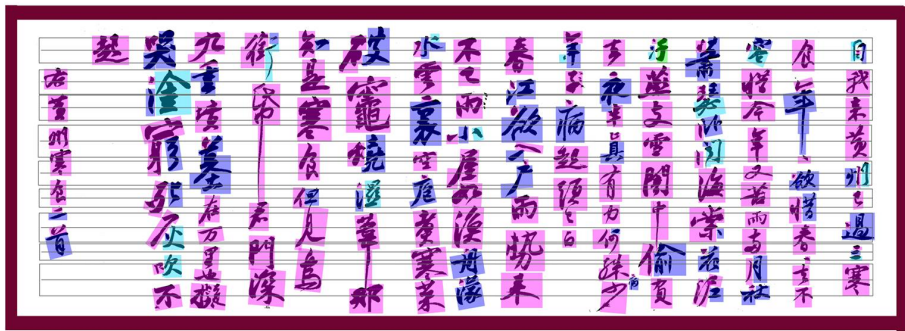 自我来黄州已過三寒
食年〻欲惜春〻去不
容惜今年又苦雨兩月秋
蕭瑟卧聞海棠花泥
汙燕支雪闇中偷負
去夜半真有力何殊少病
年子病起須已白
春江欲入户雨勢来
不已雨小屋如漁舟濛〻
水雲裏空庖煮寒菜
破竈燒濕葦那
知是寒食但見烏
銜帋君門深
九重墳墓在万里擬
哭塗窮死灰吹不
起
右黄州寒食二首